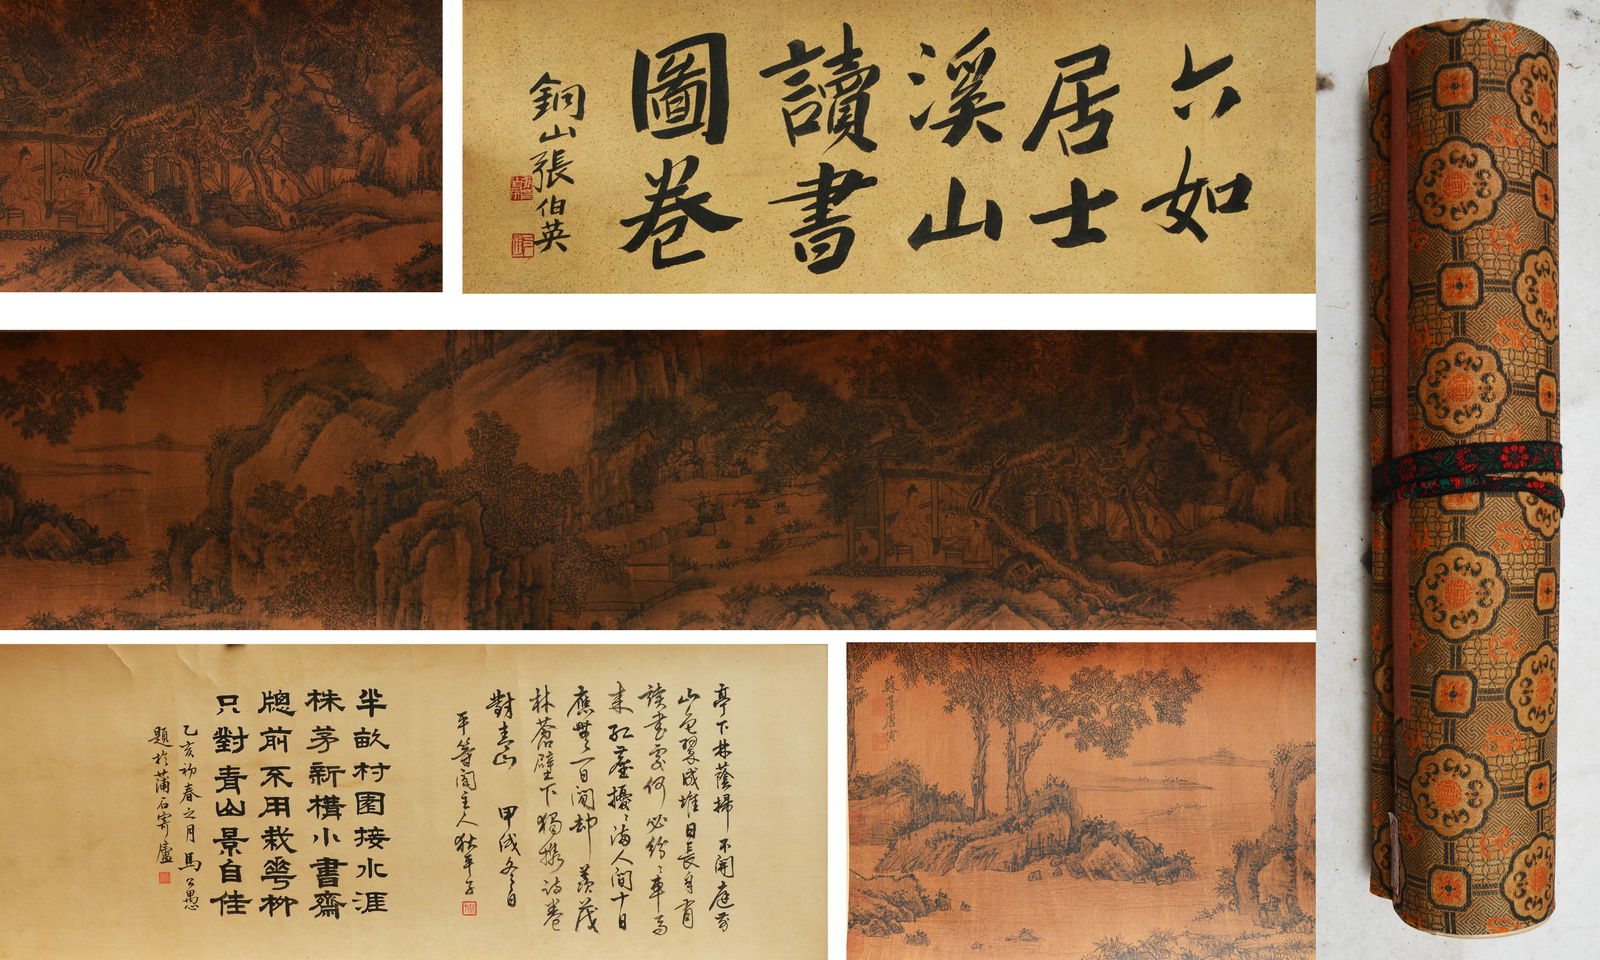 六如
居士
溪山
讀書
圖卷
銅山張伯英
亭下林蔭掃不開庭前
山色翠成堆日長自有
讀書處何必紛紛車馬
來紅塵擾擾滿人間十日
應無一日閒却羨茂
林蒼壁下獨攜詩卷
對青山 甲戌冬日
平等閣主人狄平子
半畝村園接水涯
株茅新構小書齋
牕前不用栽華柳
只對青山景自佳
乙亥初春之月馬公愚
題於蒲石寄廬
蘇臺唐寅